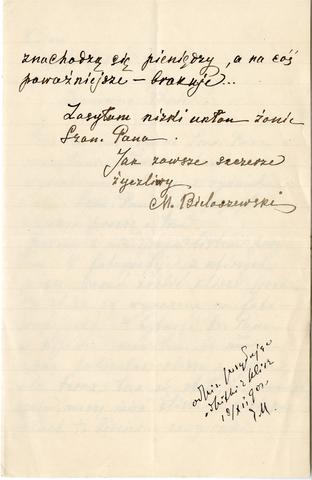 znachodzą się pieniędzy, a na coś
poważniejsze – brakuje...
Zasyłam nizki ukłon żonie
Szan. Pana.
Jak zawsze szczerze
życzliwy
M. Bieloszewski
18/XII 901